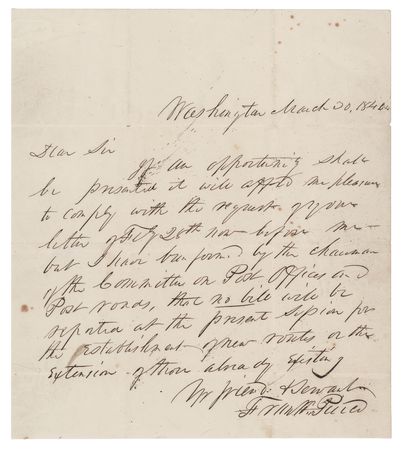 Washington March 20, 1840
Dear Sir
If an opportunity shall
be presented it will afford me pleasure
to comply with the request of your
letter of Feby 28th now before me
but I have been informed by the chairman
of the Committee on Post Offices and
Post roads, that no bill will be
reported at the present Session for
the establishment of new routes or the
Extension of those already existing
Yr friend & Servant
Frank. Pierce